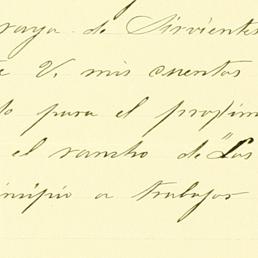 raya de Sirvientes
e V. mis cuentas
to para el proxim
el rancho de "Las
incipio a trabajar